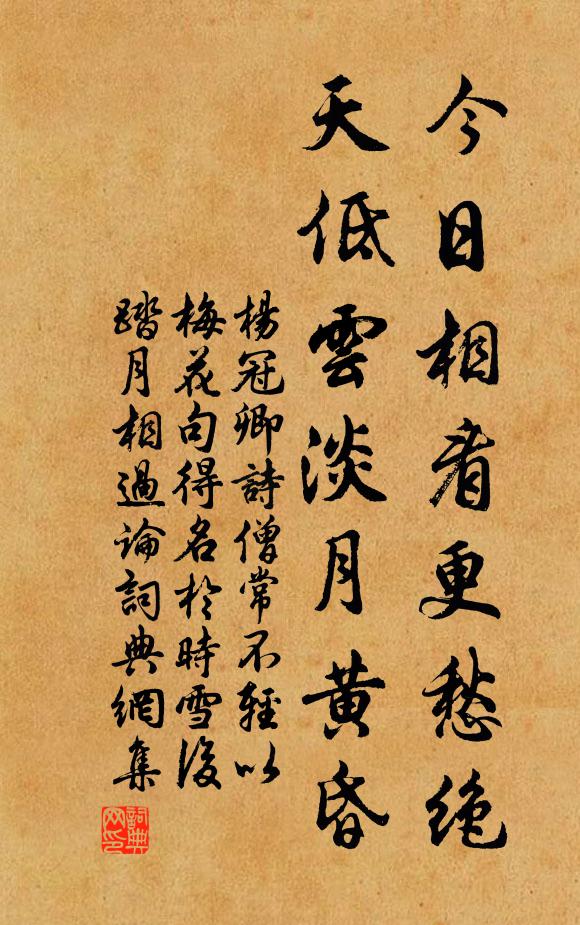 今日相看更愁絶
天低雲淡月黃昏
楊冠卿詩僧常不輕以
梅花句得名於時雪後
踏月相過論詞典網集
詞典網印